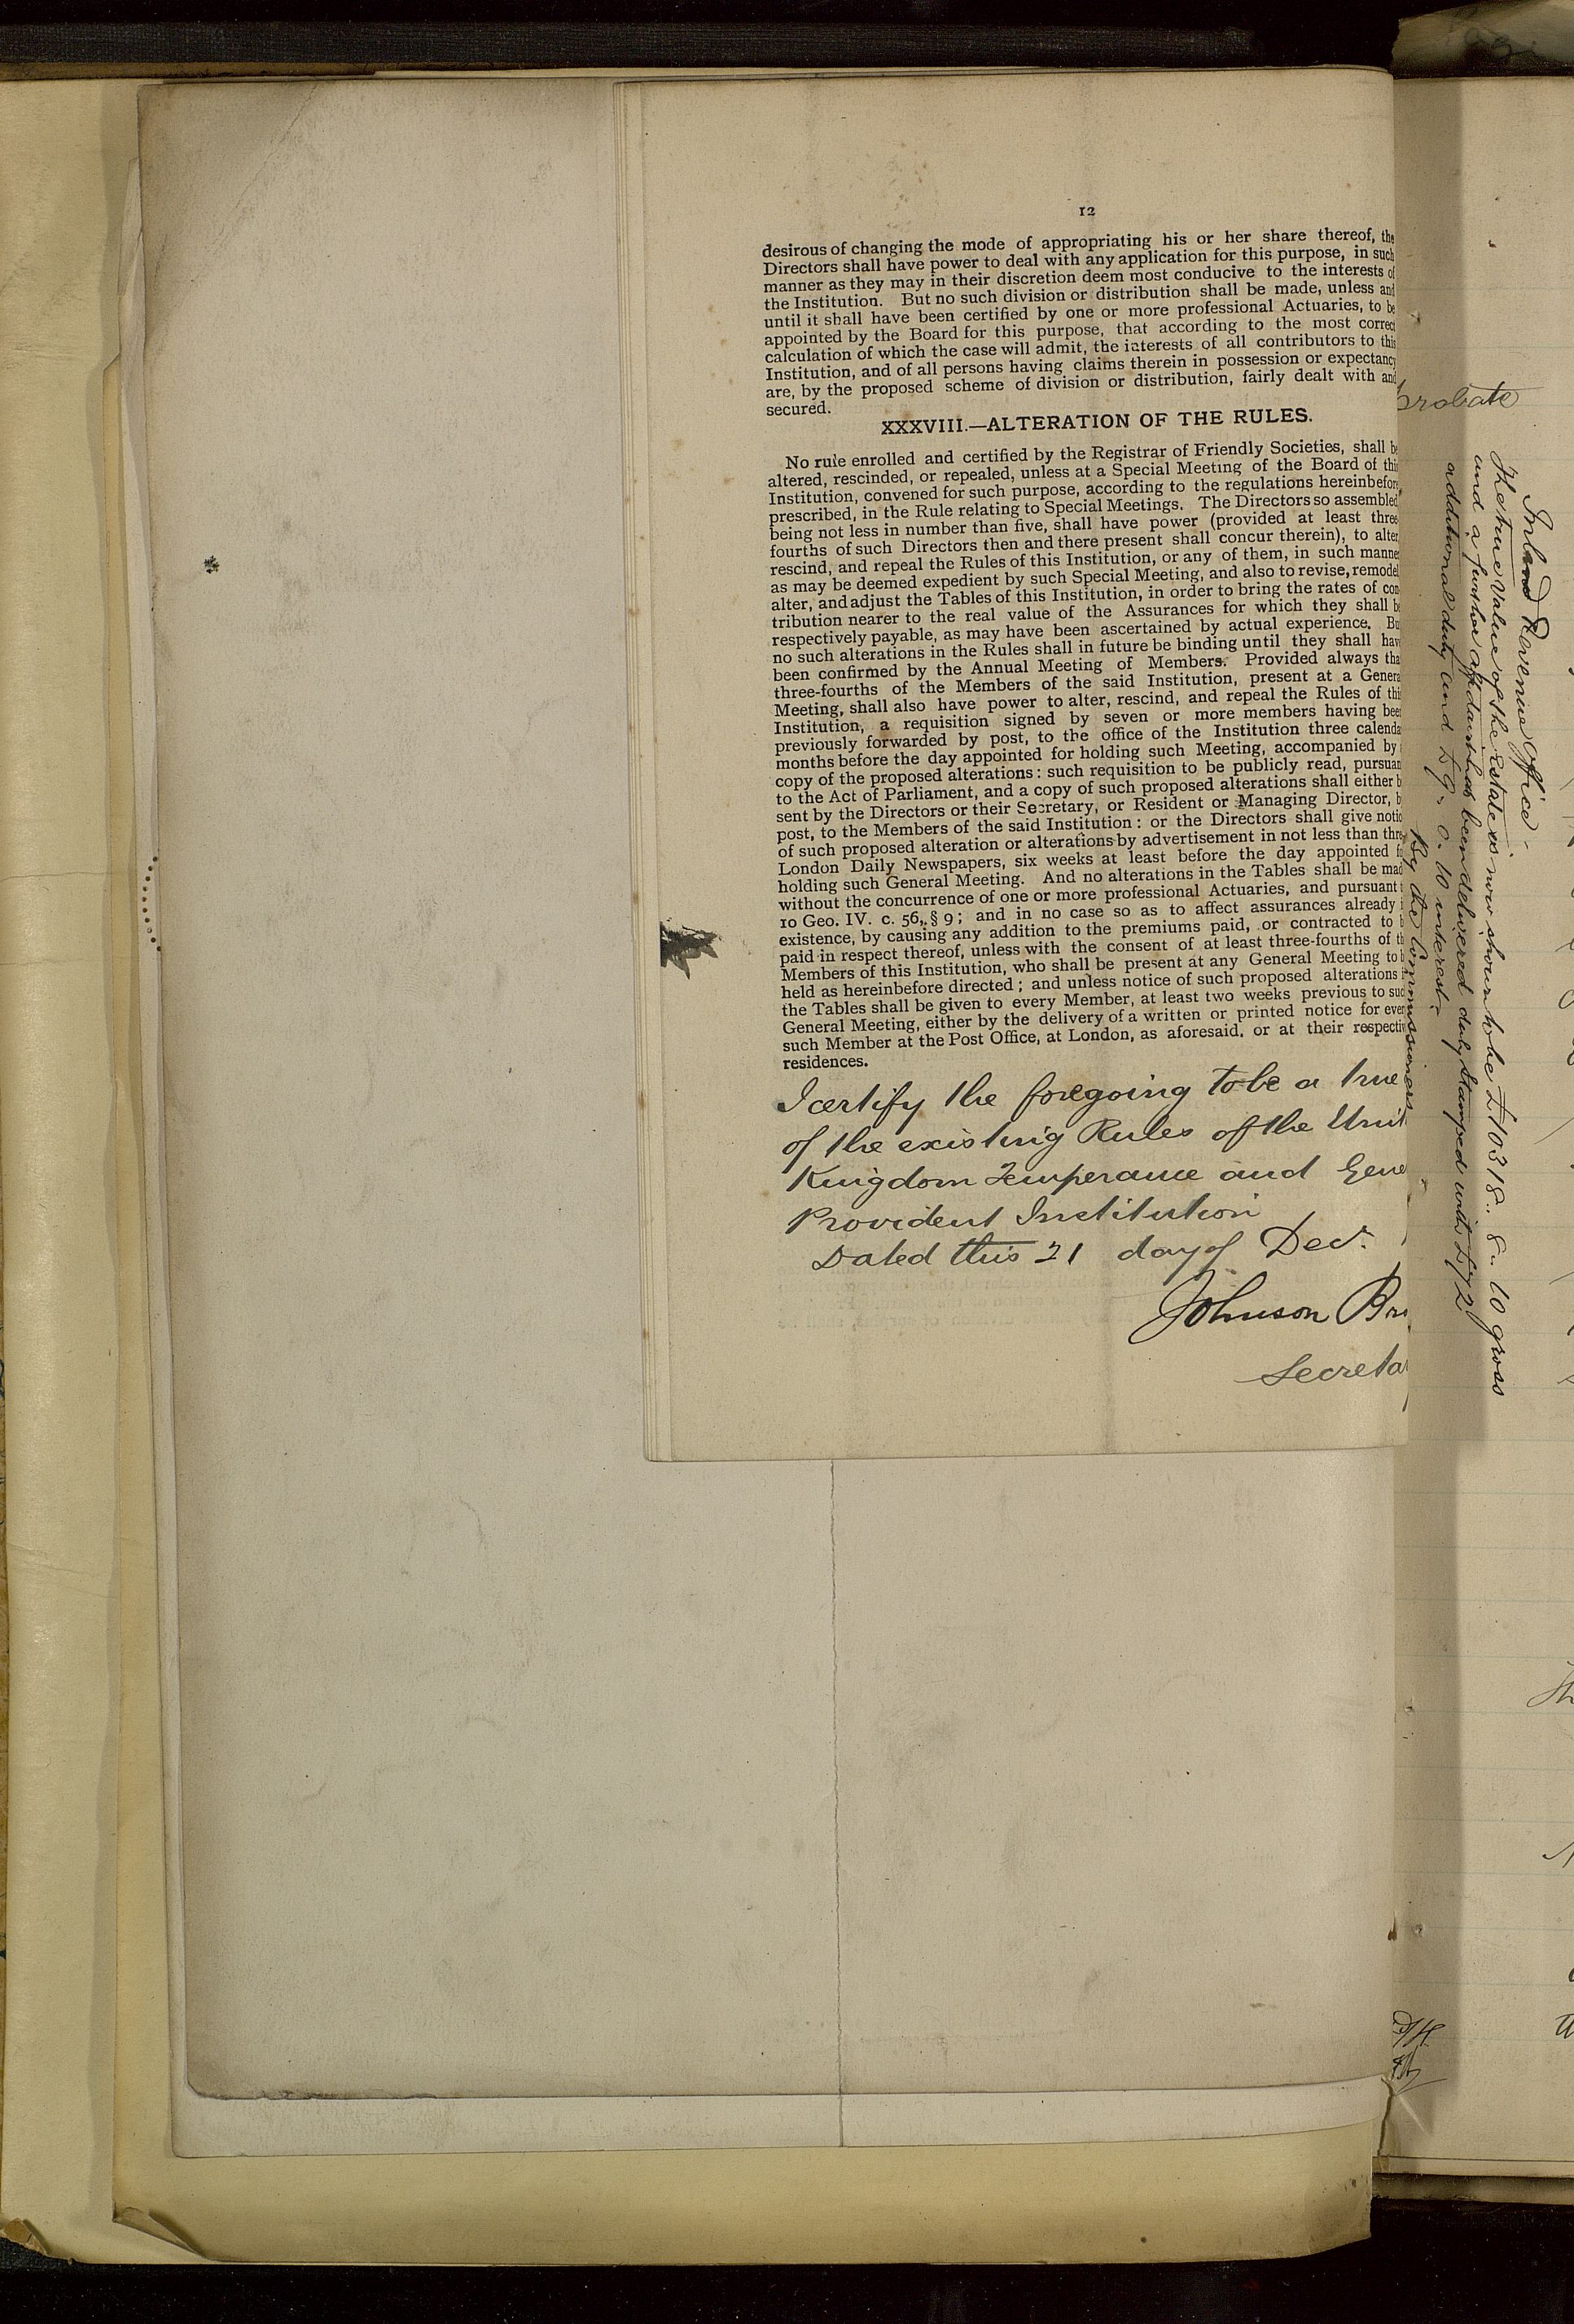 12
desirous of changing the mode of appropriating his or her share thereof, the
Directors shall have power to deal with any application for this purpose, in such
manner as they may in their discretion deem most conducive to the interests of
the Institution. But no such division or distribution shall be made, unless and
until it shall have been certified by one or more professional Actuaries, to be
appointed by the Board for this purpose, that according to the most correct
calculation of which the case will admit, the interests of all contributors to this
Institution, and of all persons having claims therein in possession or expectancy
are, by the proposed scheme of division or distribution, fairly dealt with and
secured.
XXXVIII.—ALTERATION OF THE RULES.
No rule enrolled and certified by the Registrar of Friendly Societies, shall be
altered, rescinded, or repealed, unless at a Special Meeting of the Board of this
Institution, convened for such purpose, according to the regulations hereinbefore
prescribed, in the Rule relating to Special Meetings. The Directors so assembled,
being not less in number than five, shall have power (provided at least three
fourths of such Directors then and there present shall concur therein), to alter
rescind, and repeal the Rules of this Institution, or any of them, in such manner
as may be deemed expedient by such Special Meeting, and also to revise, remodel
alter, and adjust the Tables of this Institution, in order to bring the rates of con
tribution nearer to the real value of the Assurances for which they shall be
respectively payable, as may have been ascertained by actual experience. Bu
no such alterations in the Rules shall in future be binding until they shall hav
been confirmed by the Annual Meeting of Members. Provided always tha
three-fourths of the Members of the said Institution, present at a Genera
Meeting, shall also have power to alter, rescind, and repeal the Rules of thi
Institution, a requisition signed by seven or more members having bee
previously forwarded by post, to the office of the Institution three calenda
months before the day appointed for holding such Meeting, accompanied by
copy of the proposed alterations: such requisition to be publicly read, pursuan
to the Act of Parliament, and a copy of such proposed alterations shall either b
sent by the Directors or their Secretary, or Resident or Managing Director, b
post, to the Members of the said Institution: or the Directors shall give notic
of such proposed alteration or alterations by advertisement in not less than thre
London Daily Newspapers, six weeks at least before the day appointed f
holding such General Meeting. And no alterations in the Tables shall be mad
without the concurrence of one or more professional Actuaries, and pursuant
10 Geo. IV. c. 56, § 9; and in no case so as to affect assurances already
existence, by causing any addition to the premiums paid, or contracted to b
paid in respect thereof, unless with the consent of at least three-fourths of th
Members of this Institution, who shall be present at any General Meeting to b
held as hereinbefore directed; and unless notice of such proposed alterations i
the Tables shall be given to every Member, at least two weeks previous to suc
General Meeting, either by the delivery of a written or printed notice for ever
such Member at the Post Office, at London, as aforesaid, or at their respectiv
residences.
I certify the foregoing to be a true
of the existing Rules of the Unit
Kingdom Temperance and Gene
Provident Institution
Dated this 21 day of Decr.
Johnson Br
Secreta
probate
Inland Revenue Office
The true Value of the Estate is now shown to be £10318.. 8.. 10 gross
and a further affidavit has been delivered duly stamped with £72
additional duty and £9.. 0.. 10 interest.
By the Commissioners